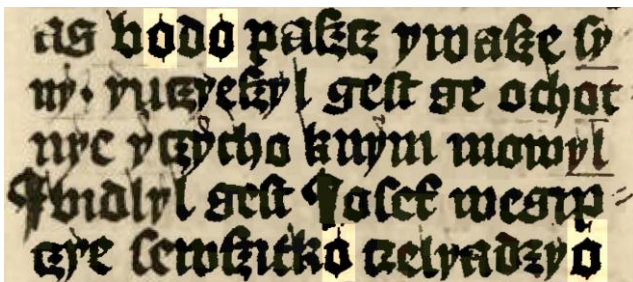 as bødø paszcz ywasze sy
ny. yuczyeszyl gest ge ochot
nye yczycho knym mowyl
Ibidlyl gest Iosef wegip
czye sewszitkø czelyadzyø